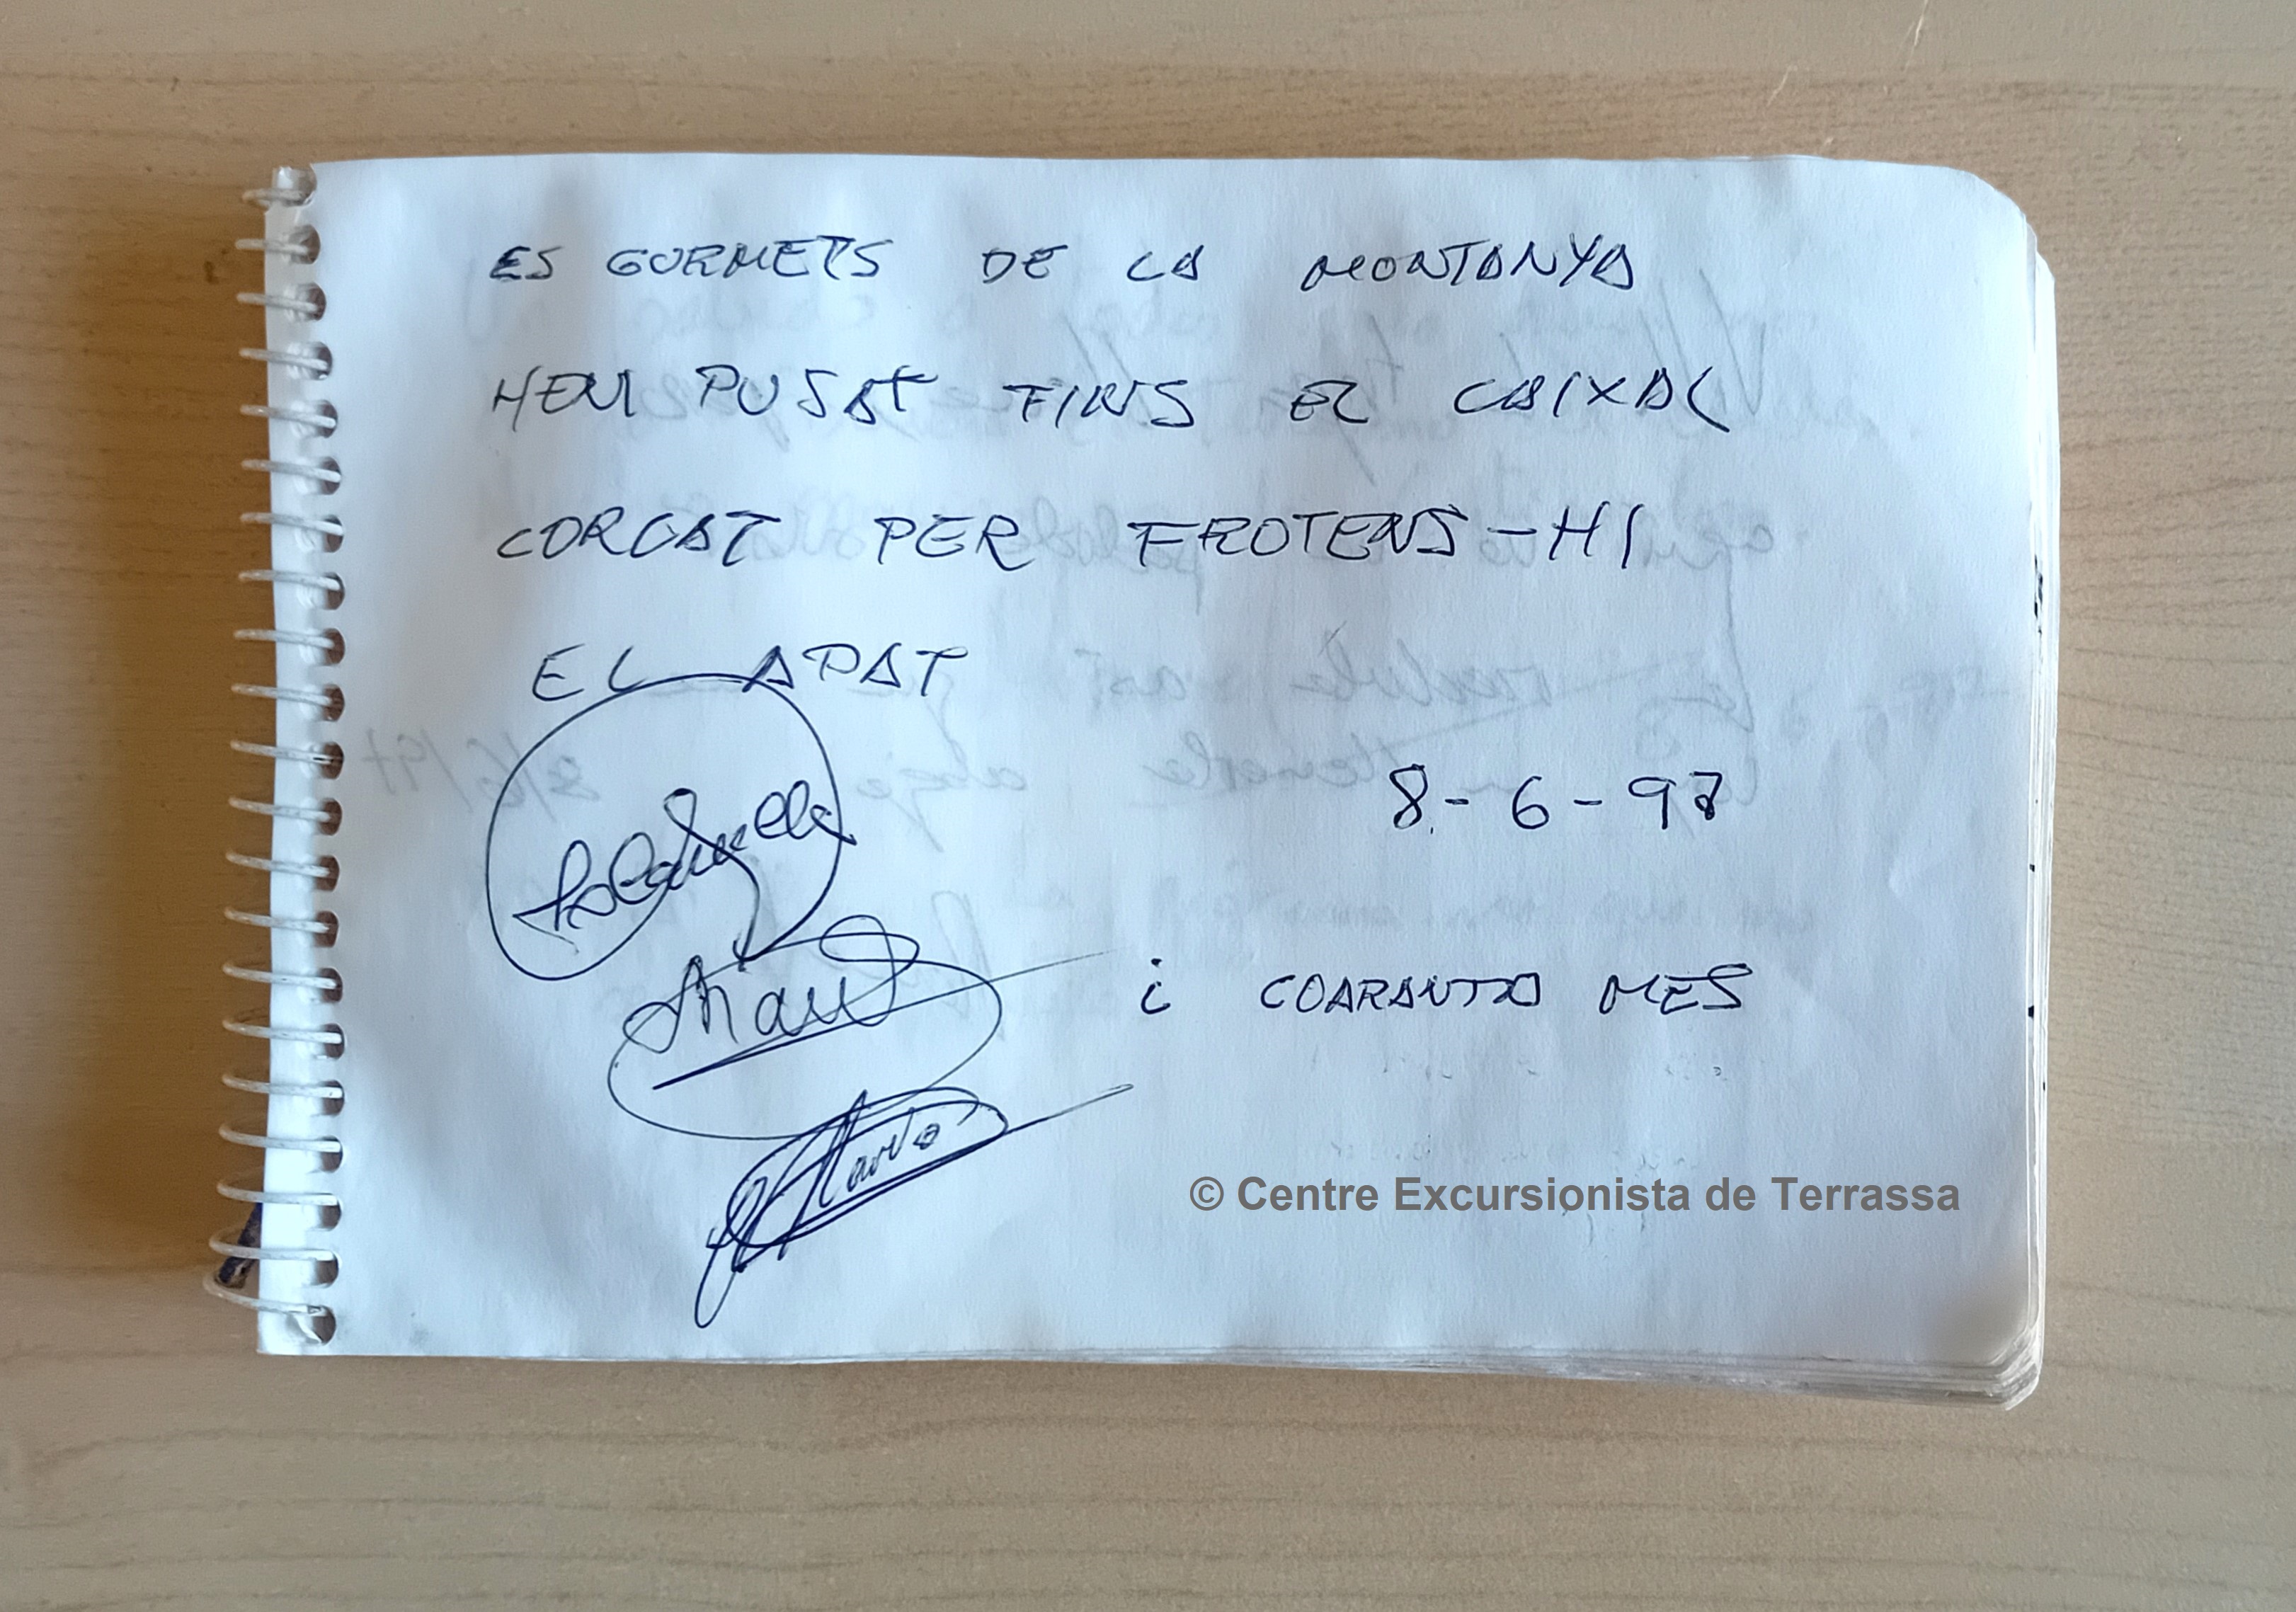 ES GURMETS DE LA MONTANYA
HEM PUSAT FINS EL CAIXAL
CORCAT PER FROTENS-HI
EL APAT
8-6-97
i COARANTA MES
© Centre Excursionista de Terrassa